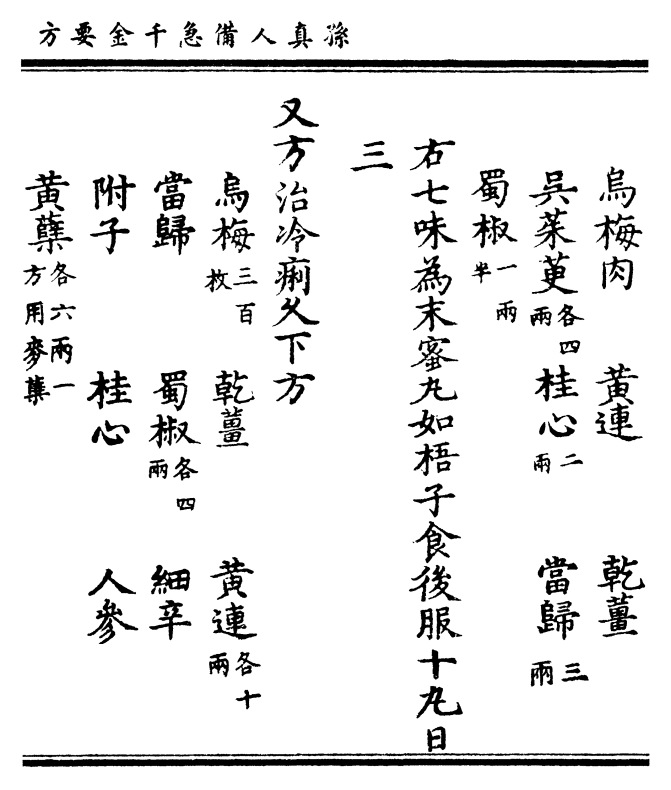 孫真人備急千金要方
烏梅肉 黃連 乾薑
吳茱萸各四兩 桂心二兩 當歸三兩
蜀椒一兩半
右七味為末蜜丸如梧子食後服十丸日
三
又方治冷痢久下方
烏梅三百枚 乾薑 黃連各十兩
當歸 蜀椒各四兩 細辛
附子 桂心 人參
黃蘗各六兩一方用麥蘗